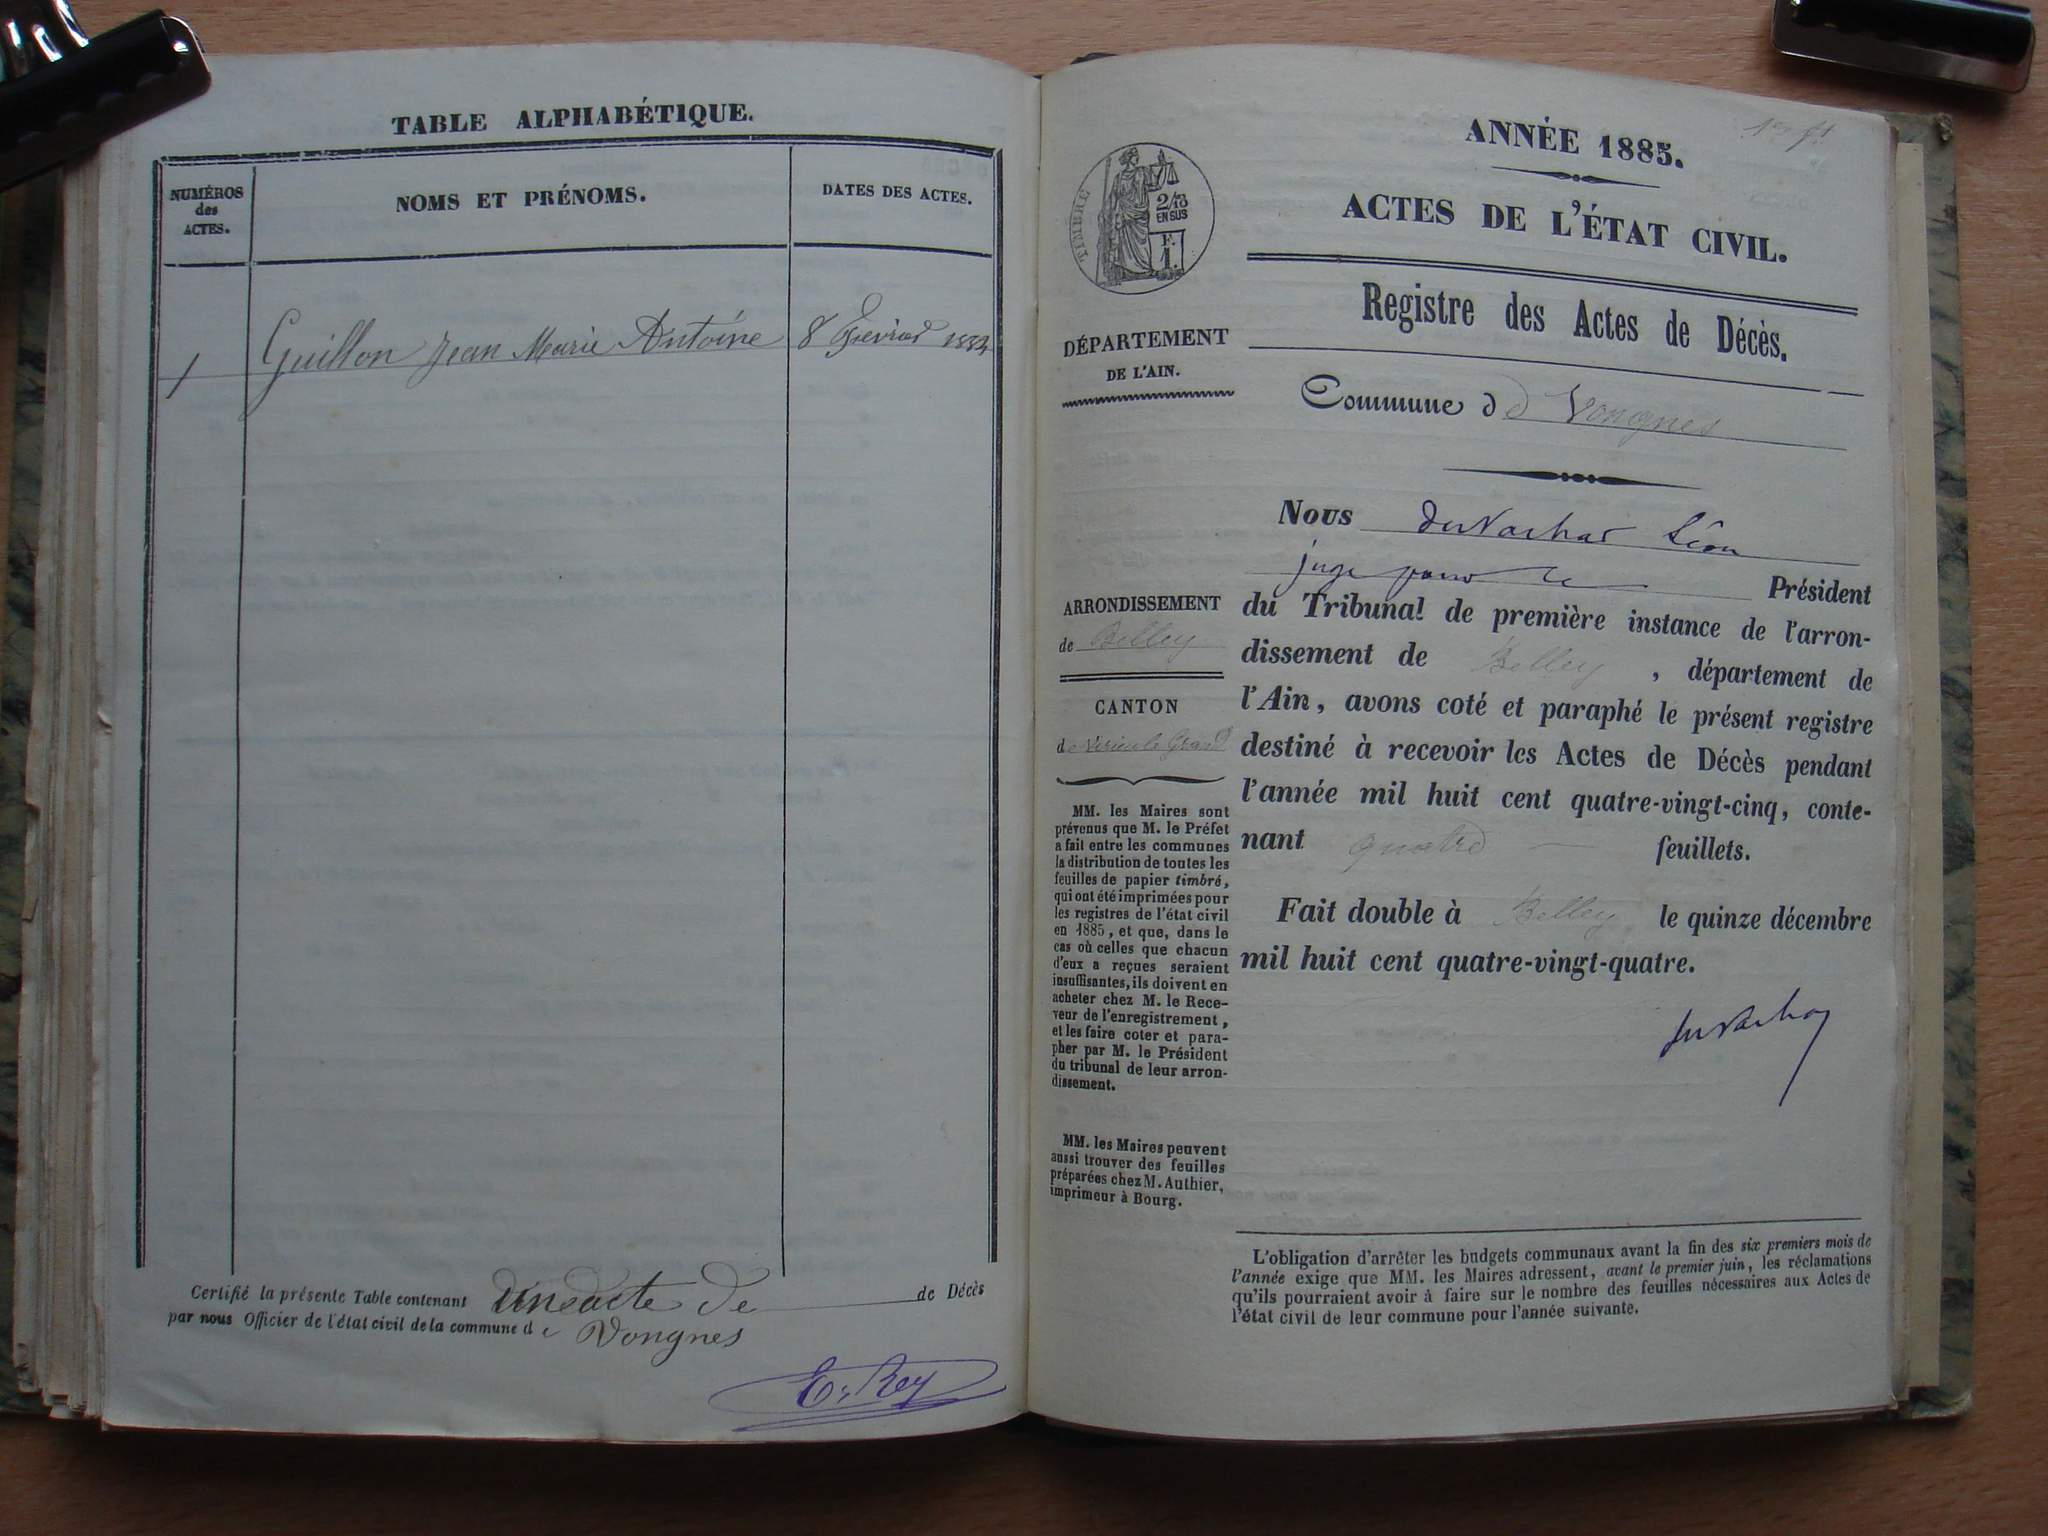 TABLE ALPHABÉTIQUE.
NUMÉROS
des
ACTES.
NOMS ET PRÉNOMS.
DATES DES ACTES.
1 Guillon Jean Marie Antoine 8 fevrier
Certifié la présente Table contenant un acte de de Décès
par nous Officier de l'état civil de la commune de Vongnes
E. Rey
1er ft
TIMBRE
2/10
EN SUS
F.
1.
DÉPARTEMENT
DE L'AIN.
ARRONDISSEMENT
de Belley
CANTON
de Virieu le Grand
MM. les Maires sont
prévenus que M. le Préfet
a fait entre les communes
la distribution de toutes les
feuilles de papier timbré,
qui ont été imprimées pour
les registres de l'état civil
en 1885, et que, dans le
cas où celles que chacun
d'eux a reçues seraient
insuffisantes, ils doivent en
acheter chez M. le Rece-
veur de l'enregistrement,
et les faire coter et para-
pher par M. le Président
du tribunal de leur arron-
dissement.
MM. les Maires peuvent
aussi trouver des feuilles
préparées chez M. Authier,
imprimeur à Bourg.
ANNÉE 1885.
ACTES DE L'ÉTAT CIVIL.
Registre des Actes de Décès.
Commune de Vongnes
Nous Léon
juge pour le Président
du Tribunal de première instance de l'arron-
dissement de Belley, département de
l'Ain, avons coté et paraphé le présent registre
destiné à recevoir les Actes de Décès pendant
l'année mil huit cent quatre-vingt-cinq, conte-
nant quatre feuillets.
Fait double à Belley, le quinze décembre
mil huit cent quatre-vingt-quatre.
L'obligation d'arrêter les budgets communaux avant la fin des six premiers mois de
l'année exige que MM. les Maires adressent, avant le premier juin, les réclamations
qu'ils pourraient avoir à faire sur le nombre des feuilles nécessaires aux Actes de
l'état civil de leur commune pour l'année suivante.